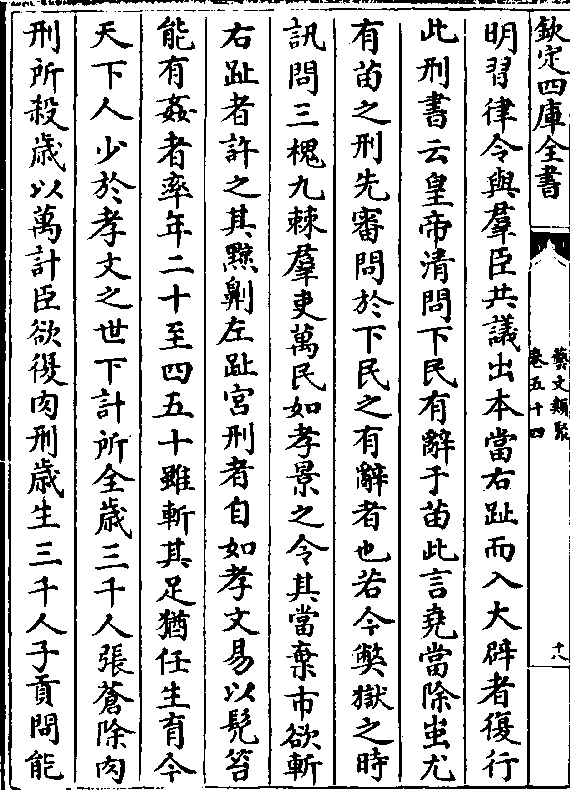 欽定四庫全書
藝文類聚
卷五十四
十八
明習律令與羣臣共議出本當右趾而入大辟者復行
此刑書云皇帝清問下民有辭于苗此言堯當除蚩尤
有苗之刑先審問於下民之有辭者也若今獘獄之時
訊問三槐九棘羣吏萬民如孝景之令其當棄市欲斬
右趾者許之其黥劓左趾宮刑者自如孝文易以髡笞
能有姦者率年二十至四五十雖斬其足猶任生育今
天下人少於孝文之世下計所全歲三千人張蒼除肉
刑所殺歲以萬計臣欲復肉刑歲生三千人子貢問能